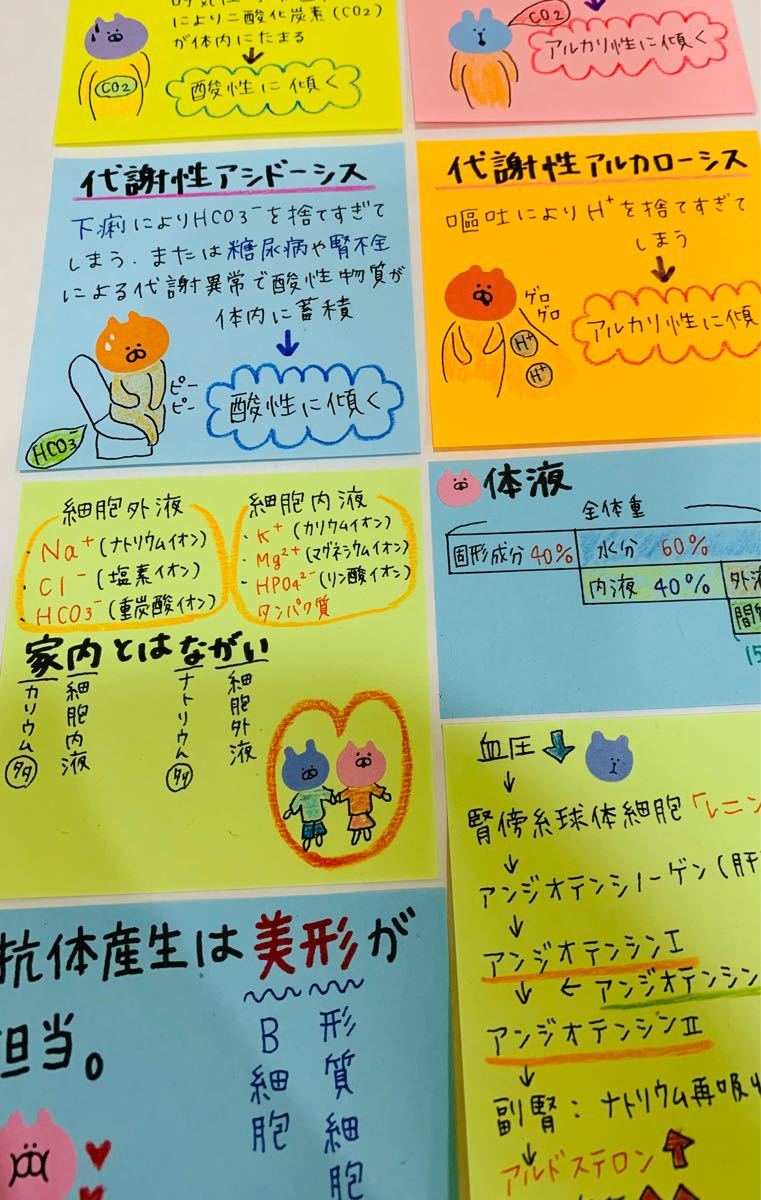 により二酸化炭素(CO2)
が体内にたまる
↓
CO2
酸性に傾く
CO2
アルカリ性に傾く
代謝性アシドーシス
下痢によりHCO3⁻を捨てすぎて
しまう.または糖尿病や腎不全
による代謝異常で酸性物質が
体内に蓄積
↓
ピー
ピー
酸性に傾く
HCO3⁻
代謝性アルカローシス
嘔吐によりH⁺を捨てすぎて
しまう
↓
ゲロ
ゲロ
H⁺
H⁺
アルカリ性に傾
細胞外液
・Na⁺(ナトリウムイオン)
・Cl⁻(塩素イオン)
・HCO3⁻(重炭酸イオン)
細胞内液
・K⁺(カリウムイオン)
・Mg²⁺(マグネシウムイオン)
・HPO4²⁻(リン酸イオン)
タンパク質
家内とはながい
カリウム多
細胞内液
ナトリウム多
細胞外液
体液
全体重
固形成分40% 水分60%
内液40% 外液
間質
15
血圧↓
↓
腎傍糸球体細胞「レニン
↓
アンジオテンシノーゲン(肝
↓
アンジオテンシンⅠ
↓ ← アンジオテンシン
アンジオテンシンⅡ
↓
副腎:ナトリウム再吸収
↓
アルドステロン↑
抗体産生は美形が
担当。
B細胞
形質細胞